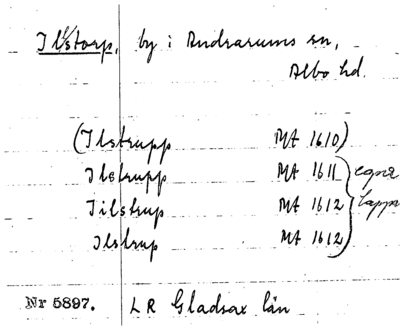 Ilstorp, by i Andrarums sn,
Albo hd.
(Ilstrupp MA 1610)
Ilstrupp MA 1611
Tilstrup MA 1612
Ilstrup MA 1612
egna
lappar
Nr 5897. LR Gladsax län